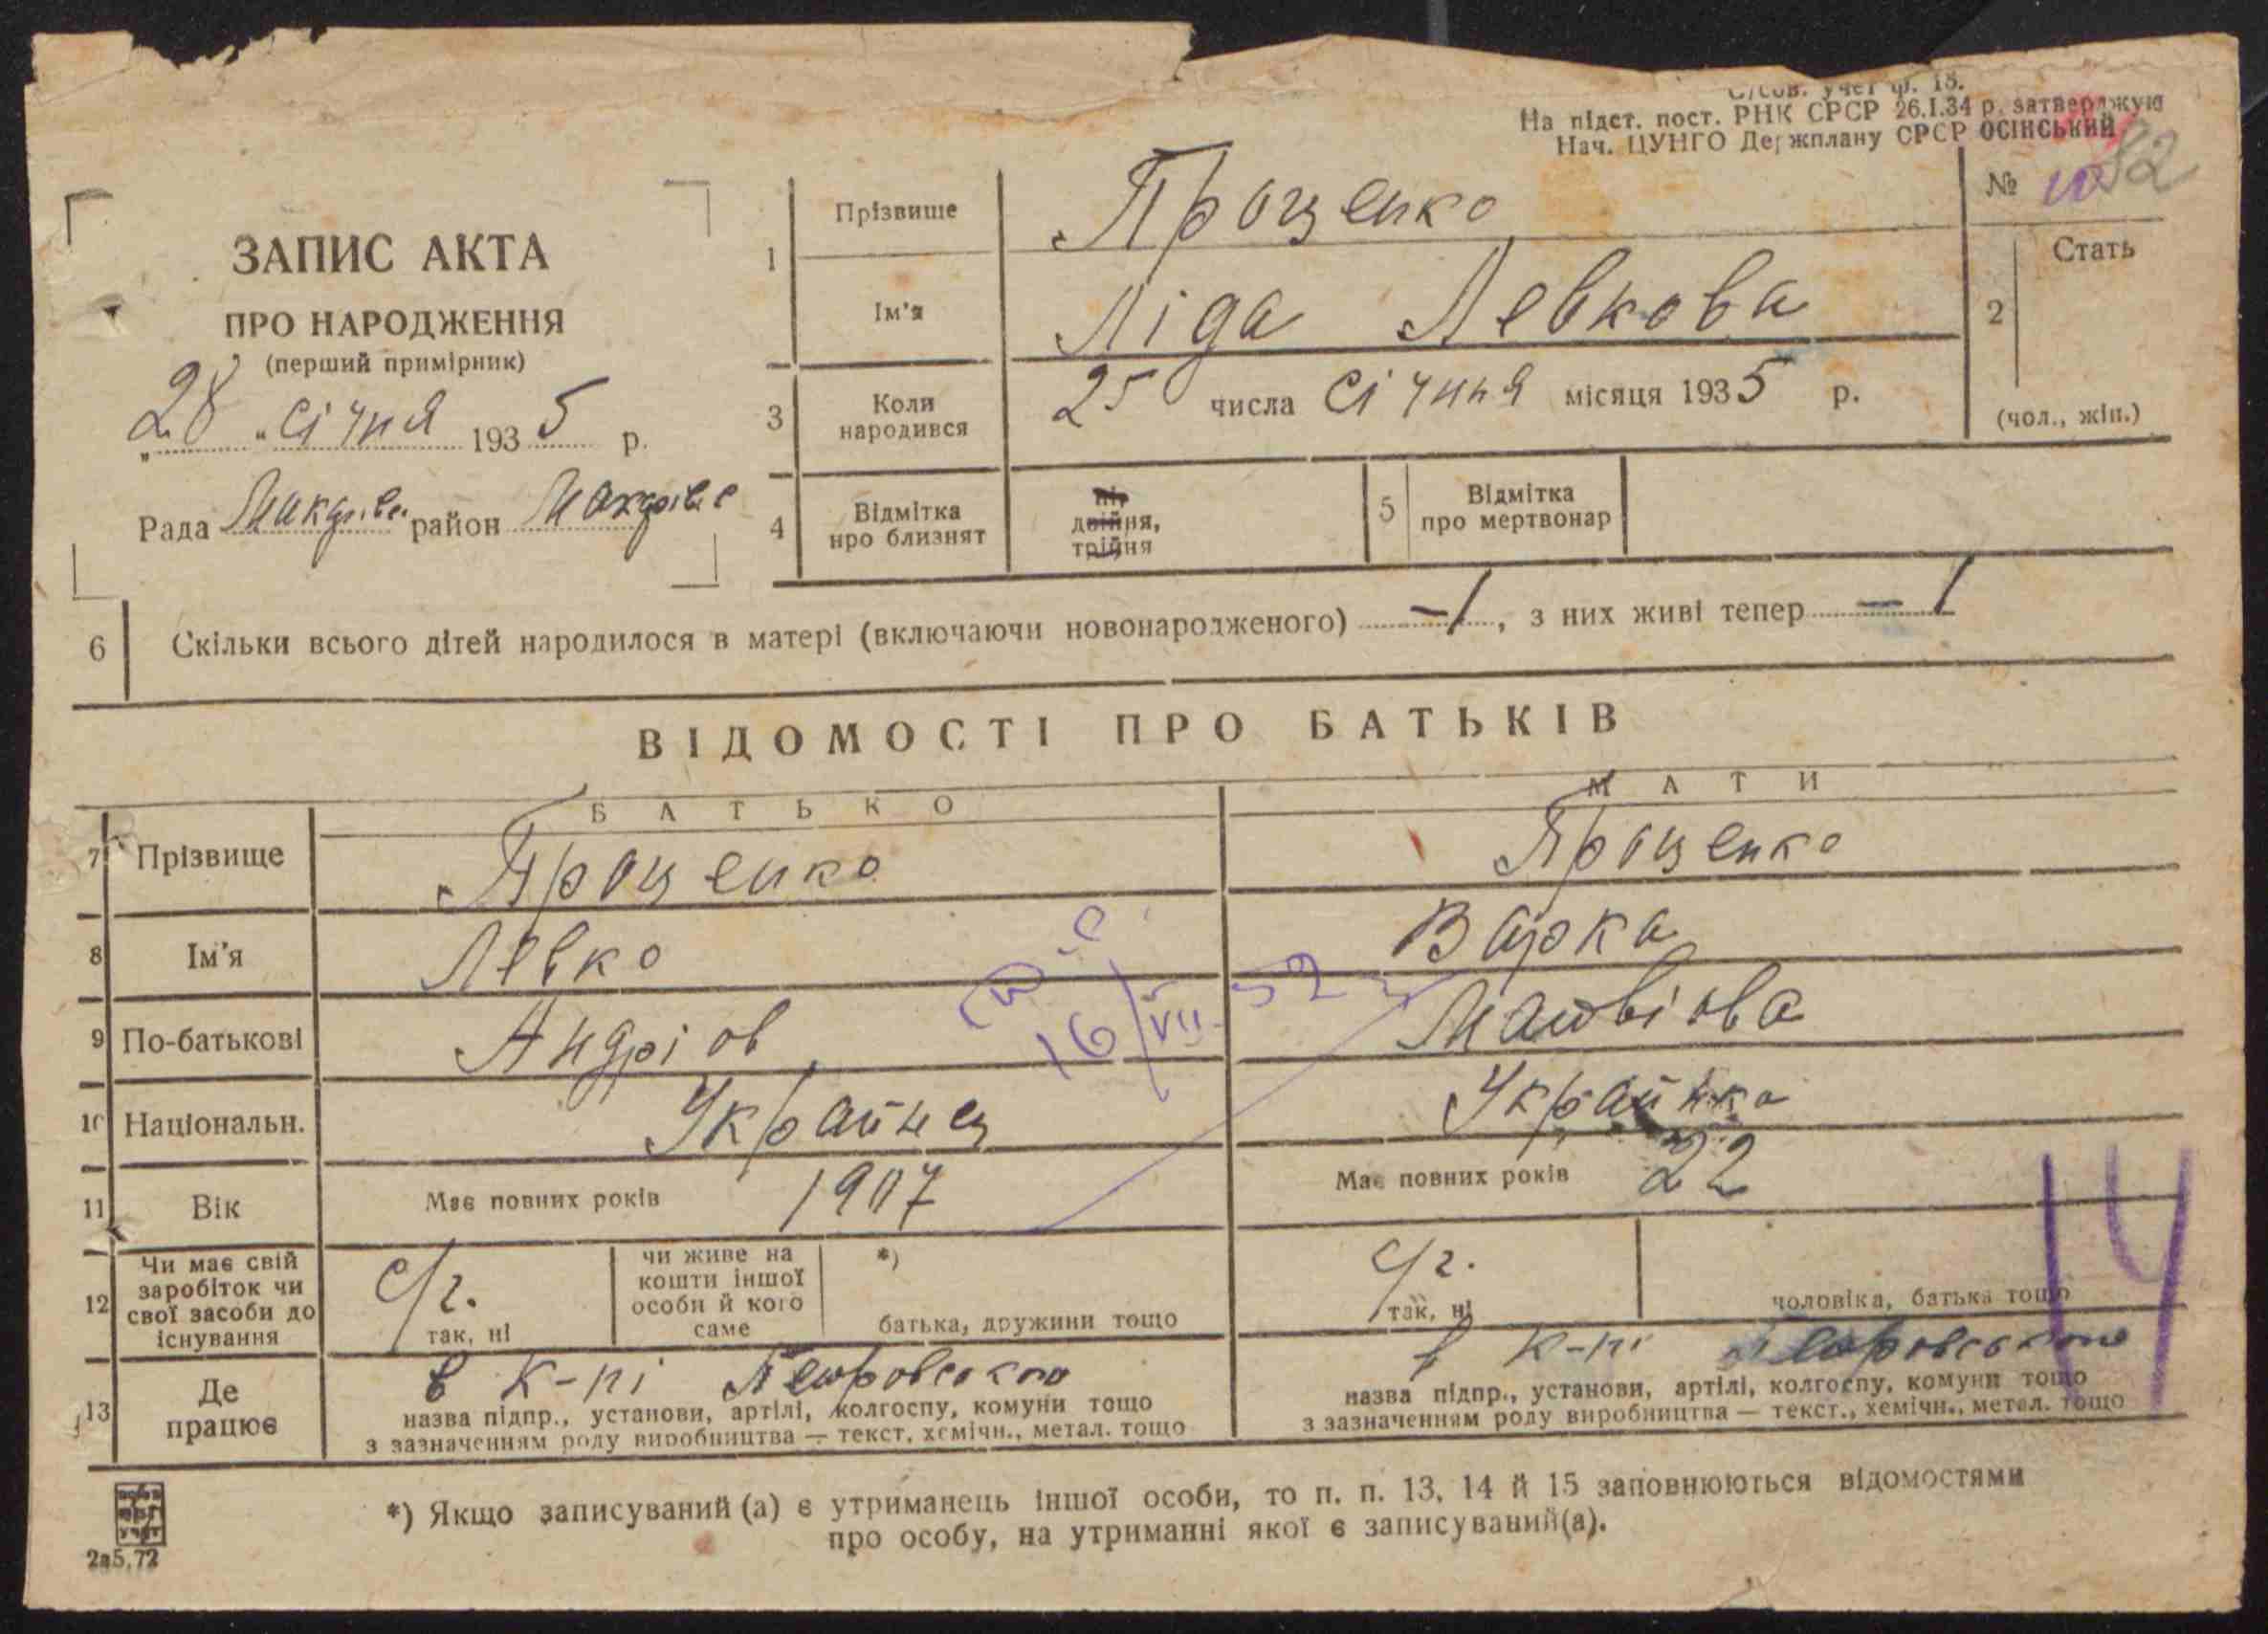 С/сов. учет ф. 15.
На підст. пост. РНК СРСР 26.I.34 р. затверджую
Нач. ЦУНГО Держплану СРСР ОСІНСЬКИЙ
№
ЗАПИС АКТА
ПРО НАРОДЖЕННЯ
(перший примірник)
„28" Січня 1935 р.
Рада район
1 Прізвище Проценко
Ім'я Ліда Левкова
2 Стать
(чол., жін.)
3 Коли народився 25 числа Січння місяця 1935 р.
4 Відмітка про близнят двійня, трійня
5 Відмітка про мертвонар
6 Скільки всього дітей народилося в матері (включаючи новонародженого) -1, з них живі тепер -1
ВІДОМОСТІ ПРО БАТЬКІВ
БАТЬКО МАТИ
7 Прізвище Проценко Проценко
8 Ім'я Левко Варка
9 По-батькові Андріов Матвіова
16/VII
10 Національн. Українец Українка
11 Вік Має повних років 1907 Має повних років 22
12 Чи має свій заробіток чи свої засоби до існування с/г. так, ні чи живе на кошти іншої особи й кого саме *) батька, дружини тощо с/г. так, ні чоловіка, батька тощо
14
13 Де працює в к-пі Петровського в к-пі Петровського
назва підпр., установи, артілі, колгоспу, комуни тощо назва підпр., установи, артілі, колгоспу, комуни тощо
з зазначенням роду виробництва — текст, хемічн., метал. тощо з зазначенням роду виробництва — текст., хемічн., метал. тощо
*) Якщо записуваний (а) є утриманець іншої особи, то п. п. 13, 14 й 15 заповнюються відомостями
про особу, на утриманні якої є записуваний(а).
2а5,72